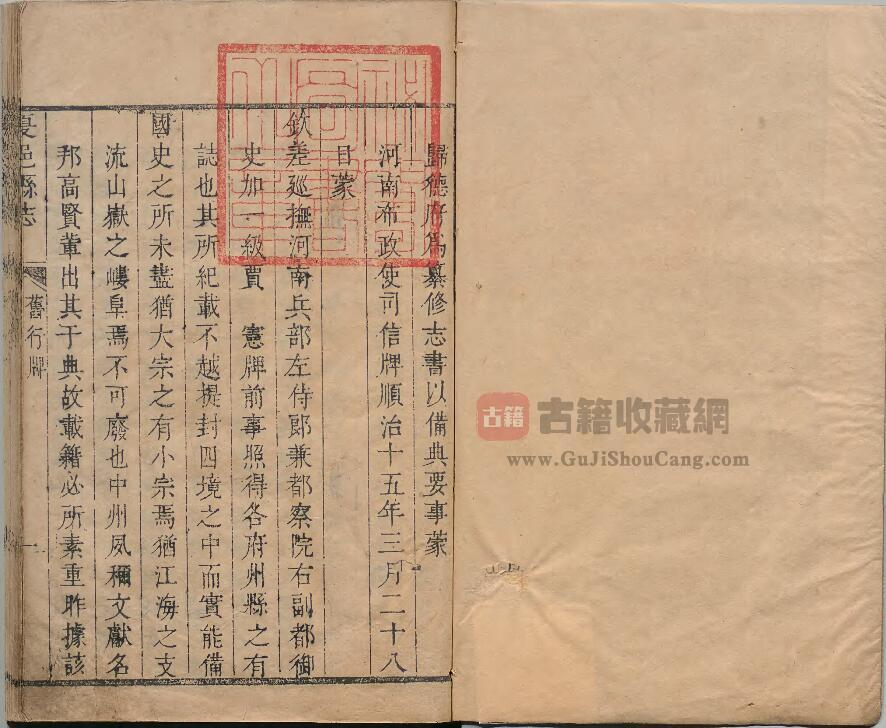 歸德府為纂修志書以備典要事蒙
河南布政使司信牌順治十五年三月二十八
日蒙
欽差廵撫河南兵部左侍郎兼都察院右副都御
史加一級賈　憲牌前事照得各府州縣之有
誌也其所紀載不越提封四境之中而實能備
國史之所未盡猶大宗之有小宗焉猶江海之支
流山嶽之嶁阜焉不可廢也中州夙稱文獻名
邦高賢輩出其于典故載籍必所素重昨據該
夏邑縣志
舊行牌
一
古籍
古籍收藏網
www.GuJiShouCang.com